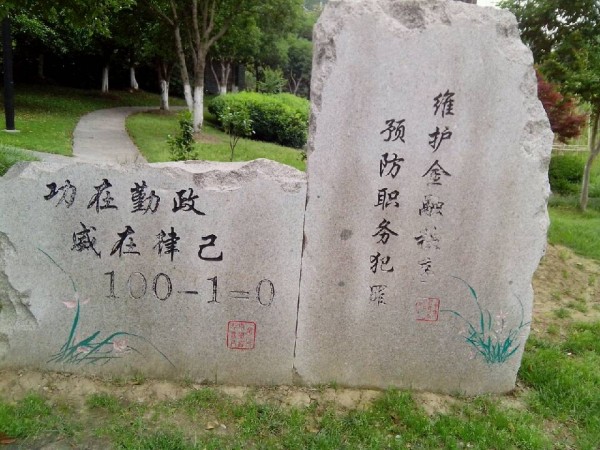 功在勤政
威在律己
100-1=0
维护金融
预防职务犯罪